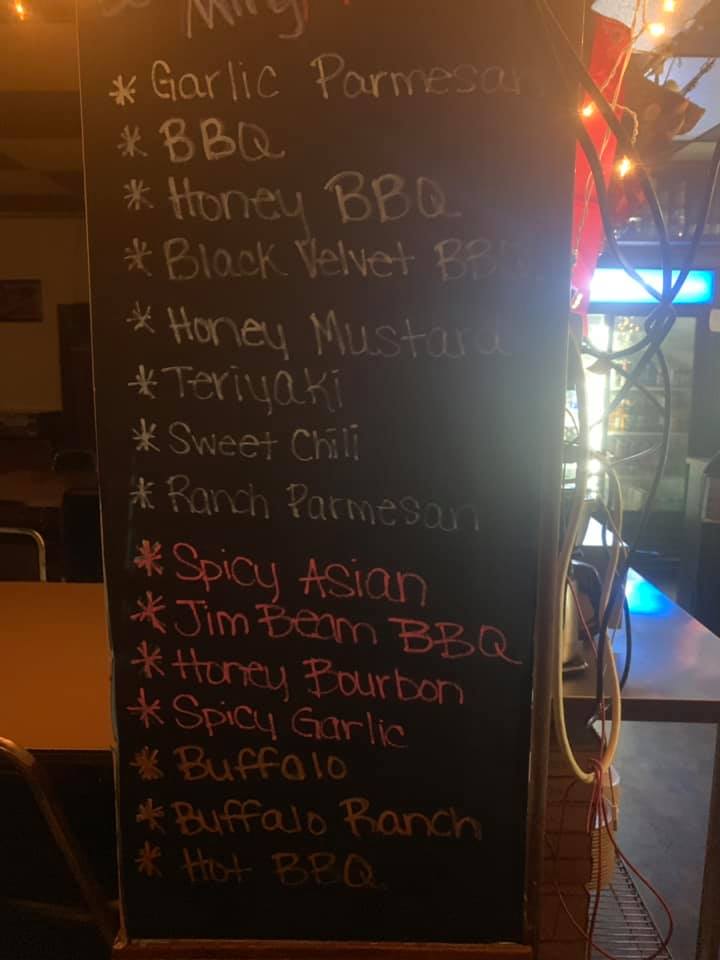 * Garlic Parmesan
* BBQ
* Honey BBQ
* Black Velvet BBQ
* Honey Mustard
* Teriyaki
* Sweet Chili
* Ranch Parmesan
* Spicy Asian
* Jim Beam BBQ
* Honey Bourbon
* Spicy Garlic
* Buffalo
* Buffalo Ranch
* Hot BBQ